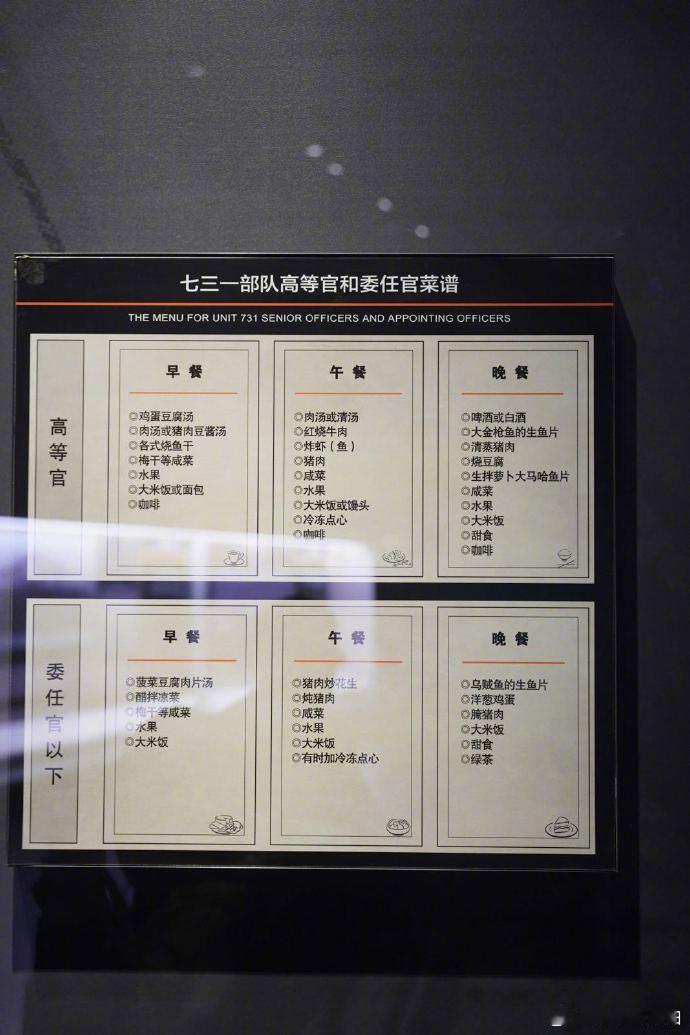 七三一部队高等官和委任官菜谱
THE MENU FOR UNIT 731 SENIOR OFFICERS AND APPOINTING OFFICERS
高等官
早餐
◎鸡蛋豆腐汤
◎肉汤或猪肉豆酱汤
◎各式烧鱼干
◎梅干等咸菜
◎水果
◎大米饭或面包
◎咖啡
午餐
◎肉汤或清汤
◎红烧牛肉
◎炸虾（鱼）
◎猪肉
◎咸菜
◎水果
◎大米饭或馒头
◎冷冻点心
◎咖啡
晚餐
◎啤酒或白酒
◎大金枪鱼的生鱼片
◎清蒸猪肉
◎烧豆腐
◎生拌萝卜大马哈鱼片
◎咸菜
◎水果
◎大米饭
◎甜食
◎咖啡
委任官以下
早餐
◎菠菜豆腐肉片汤
◎醋拌凉菜
◎梅干等咸菜
◎水果
◎大米饭
午餐
◎猪肉炒花生
◎炖猪肉
◎咸菜
◎水果
◎大米饭
◎有时加冷冻点心
晚餐
◎乌贼鱼的生鱼片
◎洋葱鸡蛋
◎腌猪肉
◎大米饭
◎甜食
◎绿茶